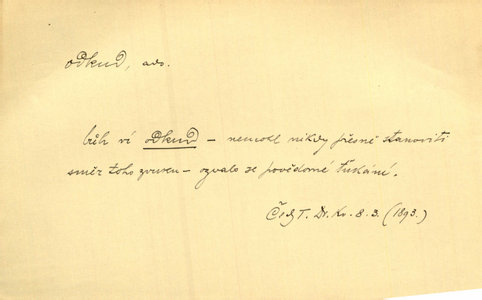 odkud, adv.
bůh ví odkud – nemohl nikdy přesně stanoviti
směr toho zvuku – ozvalo se povědomé ťukání.
Kv. 8. 3. (1893.)